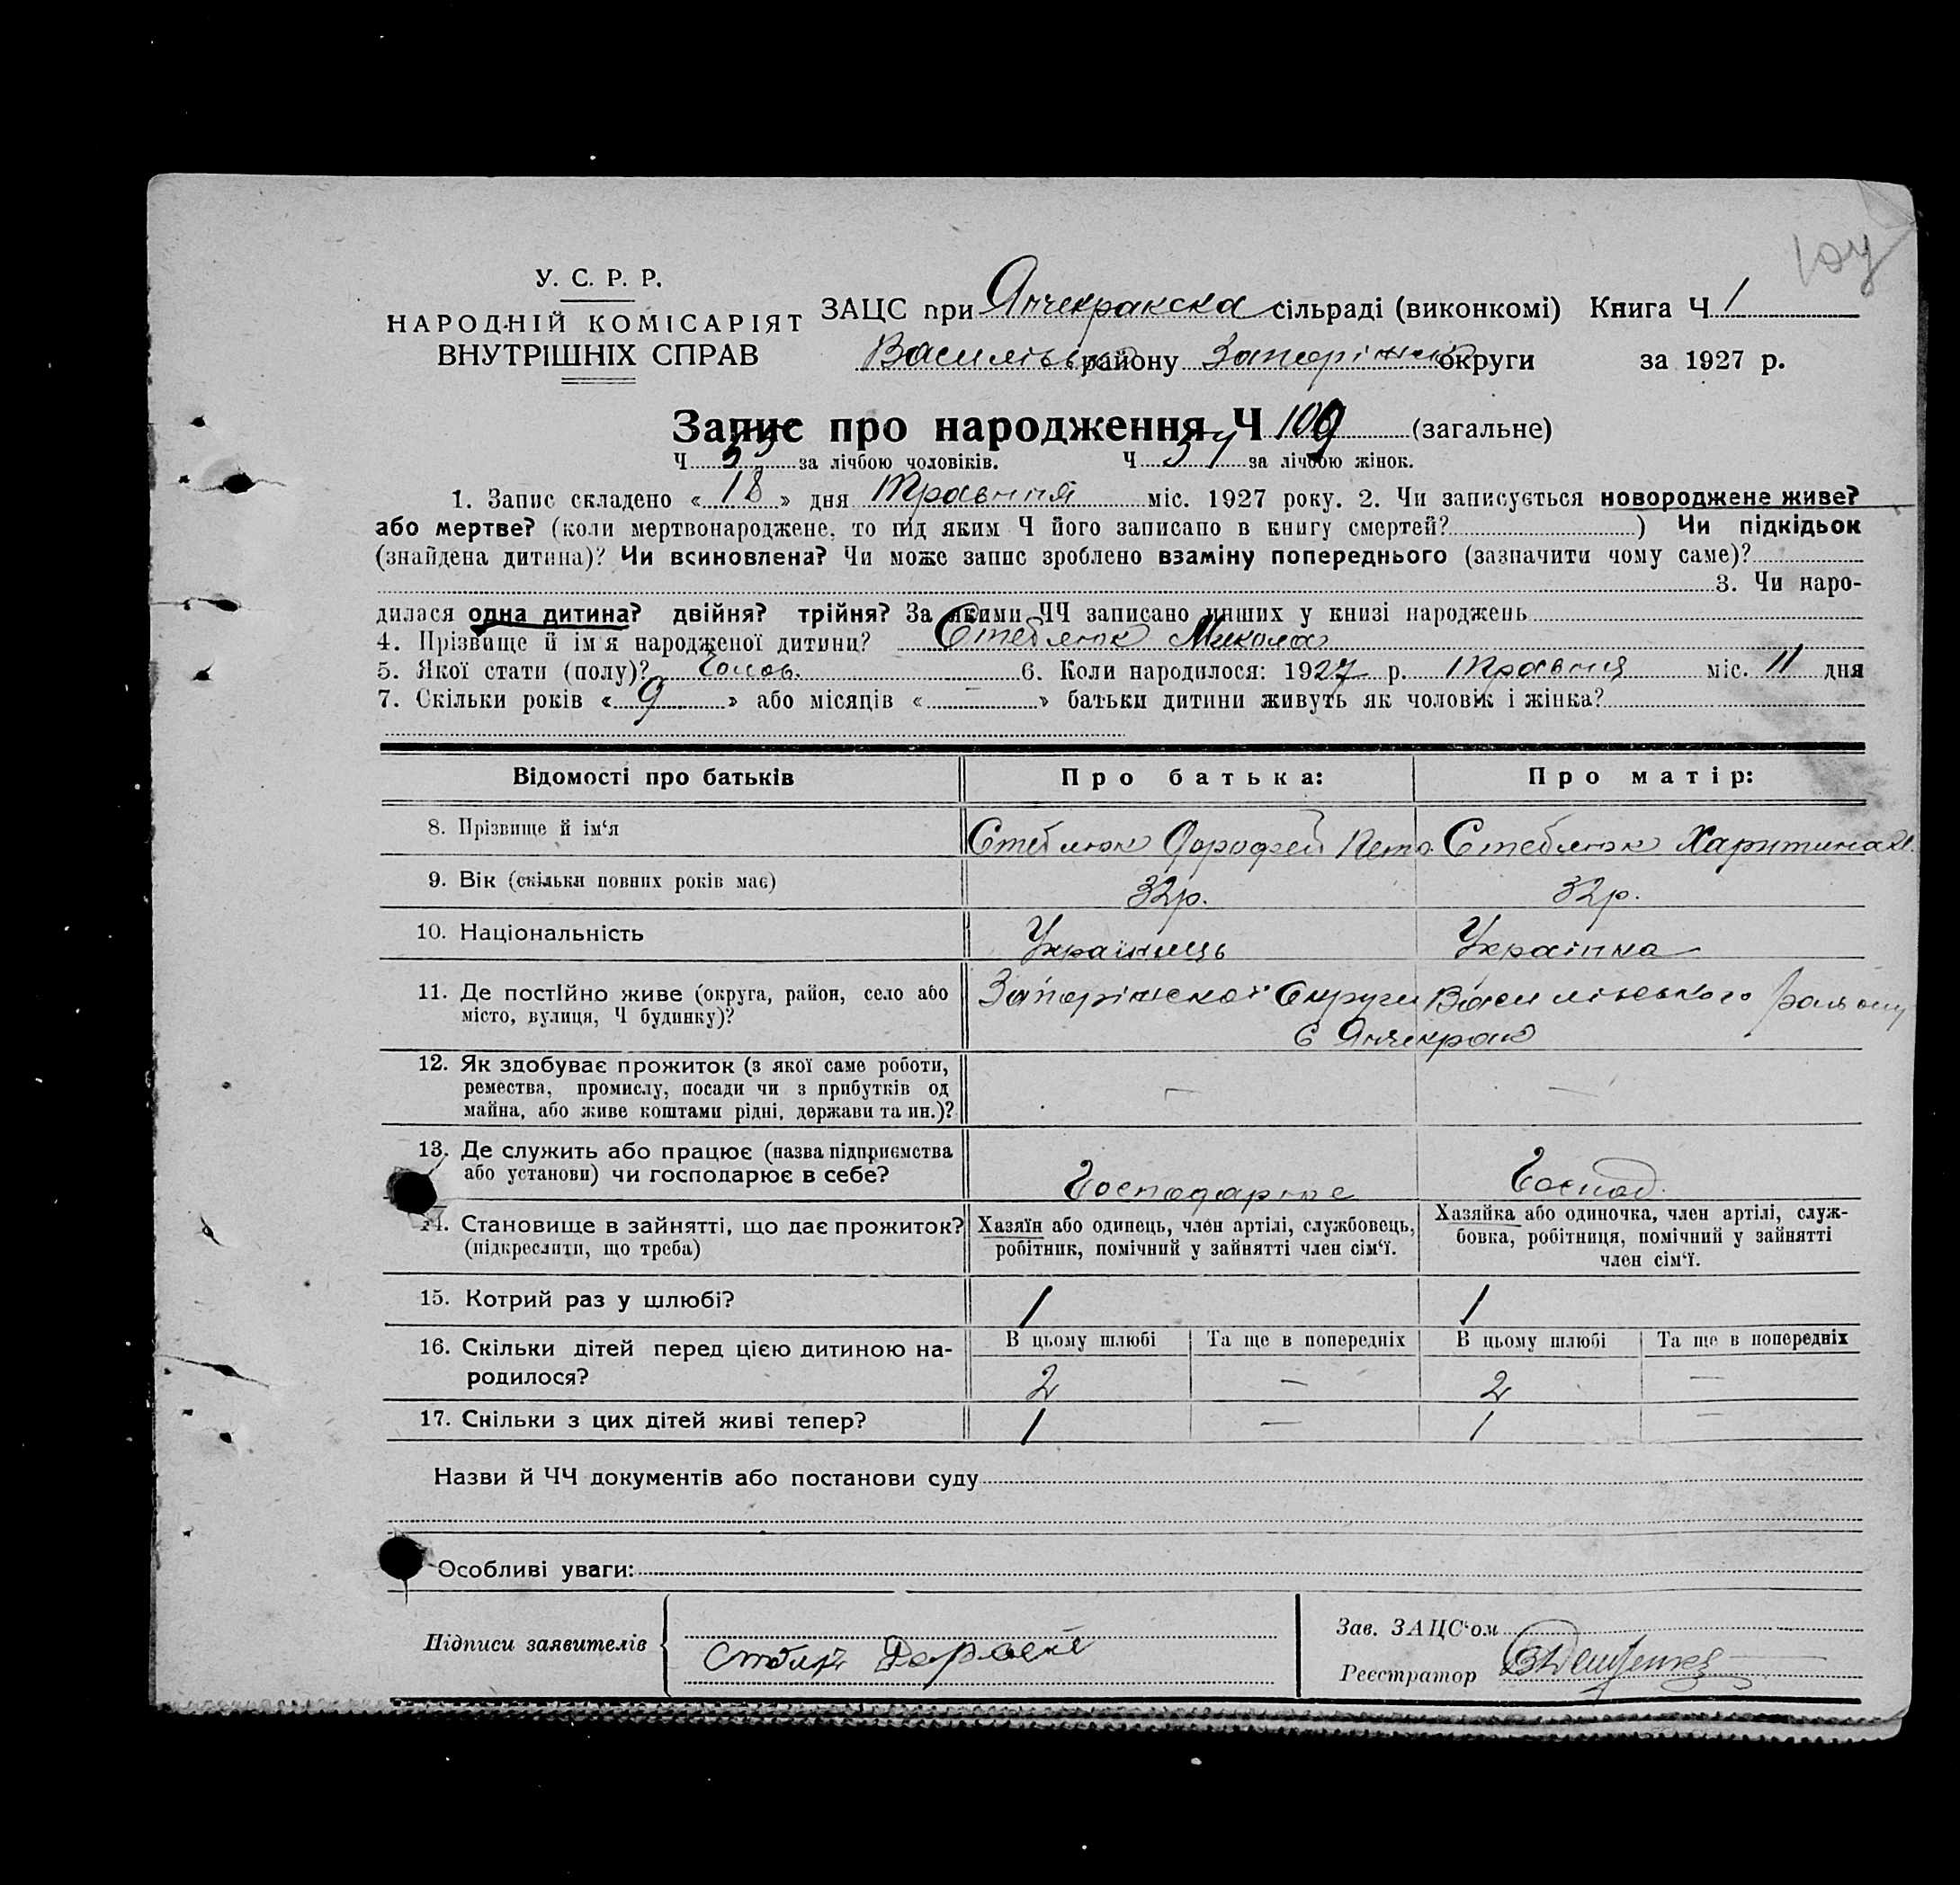 109
У. С. Р. Р.
НАРОДНІЙ КОМІСАРІЯТ
ВНУТРІШНІХ СПРАВ
ЗАЦС при Янчекракска сільраді (виконкомі) Книга Ч 1
Василівськ району Запоріжжя округи за 1927 р.
Запис про народження Ч 109 (загальне)
Ч 53 за лічбою чоловіків. Ч 57 за лічбою жінок.
1. Запис складено « 18 » дня Травння міс. 1927 року. 2. Чи записується новороджене живе?
або мертве? (коли мертвонароджене, то під яким Ч його записано в книгу смертей? ) Чи підкідьок
(знайдена дитина)? Чи всиновлена? Чи може запис зроблено взаміну попереднього (зазначити чому саме)?
3. Чи наро-
дилася одна дитина? двійня? трійня? За якими ЧЧ записано инших у книзі народжень
4. Прізвище й ім'я народженої дитини? Стеблюк Микола
5. Якої стати (полу)? Чолов. 6. Коли народилося: 1927 р. Травня міс. 11 дня
7. Скільки років « 9 » або місяців « — » батьки дитини живуть як чоловік і жінка?
Відомості про батьків Про батька: Про матір:
8. Прізвище й ім'я Стеблюк Дорофей Петр. Стеблюк Харитина
9. Вік (скільки повних років має) 32р. 32р.
10. Національність Українець Українка
11. Де постійно живе (округа, район, село або Запоріжскої Округи Василівського району
місто, вулиця, Ч будинку)? с Янчекрак
12. Як здобуває прожиток (з якої саме роботи, — —
ремества, промислу, посади чи з прибутків од
майна, або живе коштами рідні, держави та ин.)?
13. Де служить або працює (назва підприємства
або установи) чи господарює в себе? Господарює Господ.
14. Становище в зайнятті, що дає прожиток? Хазяїн або одинець, член артілі, службовець, Хазяйка або одиночка, член артілі, служ-
(підкреслити, що треба) робітник, помічний у зайнятті член сім'ї. бовка, робітниця, помічний у зайнятті
член сім'ї.
15. Котрий раз у шлюбі? 1 1
16. Скільки дітей перед цією дитиною на- В цьому шлюбі Та ще в попередніх В цьому шлюбі Та ще в попередніх
родилося? 2 — 2 —
17. Скільки з цих дітей живі тепер? 1 — 1 —
Назви й ЧЧ документів або постанови суду
Особливі уваги:
Підписи заявителів
Зав. ЗАЦС'ом
Реєстратор